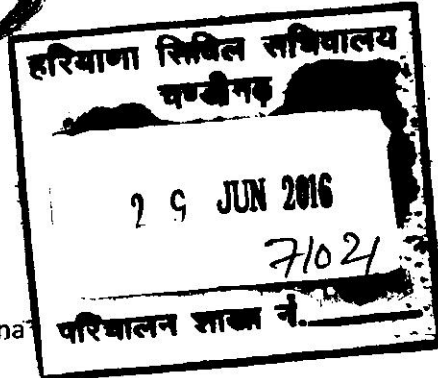 हरियाणा सिविल सचिवालय
चण्डीगढ़
29 JUN 2016
7102
na परिचालन शाखा नं.